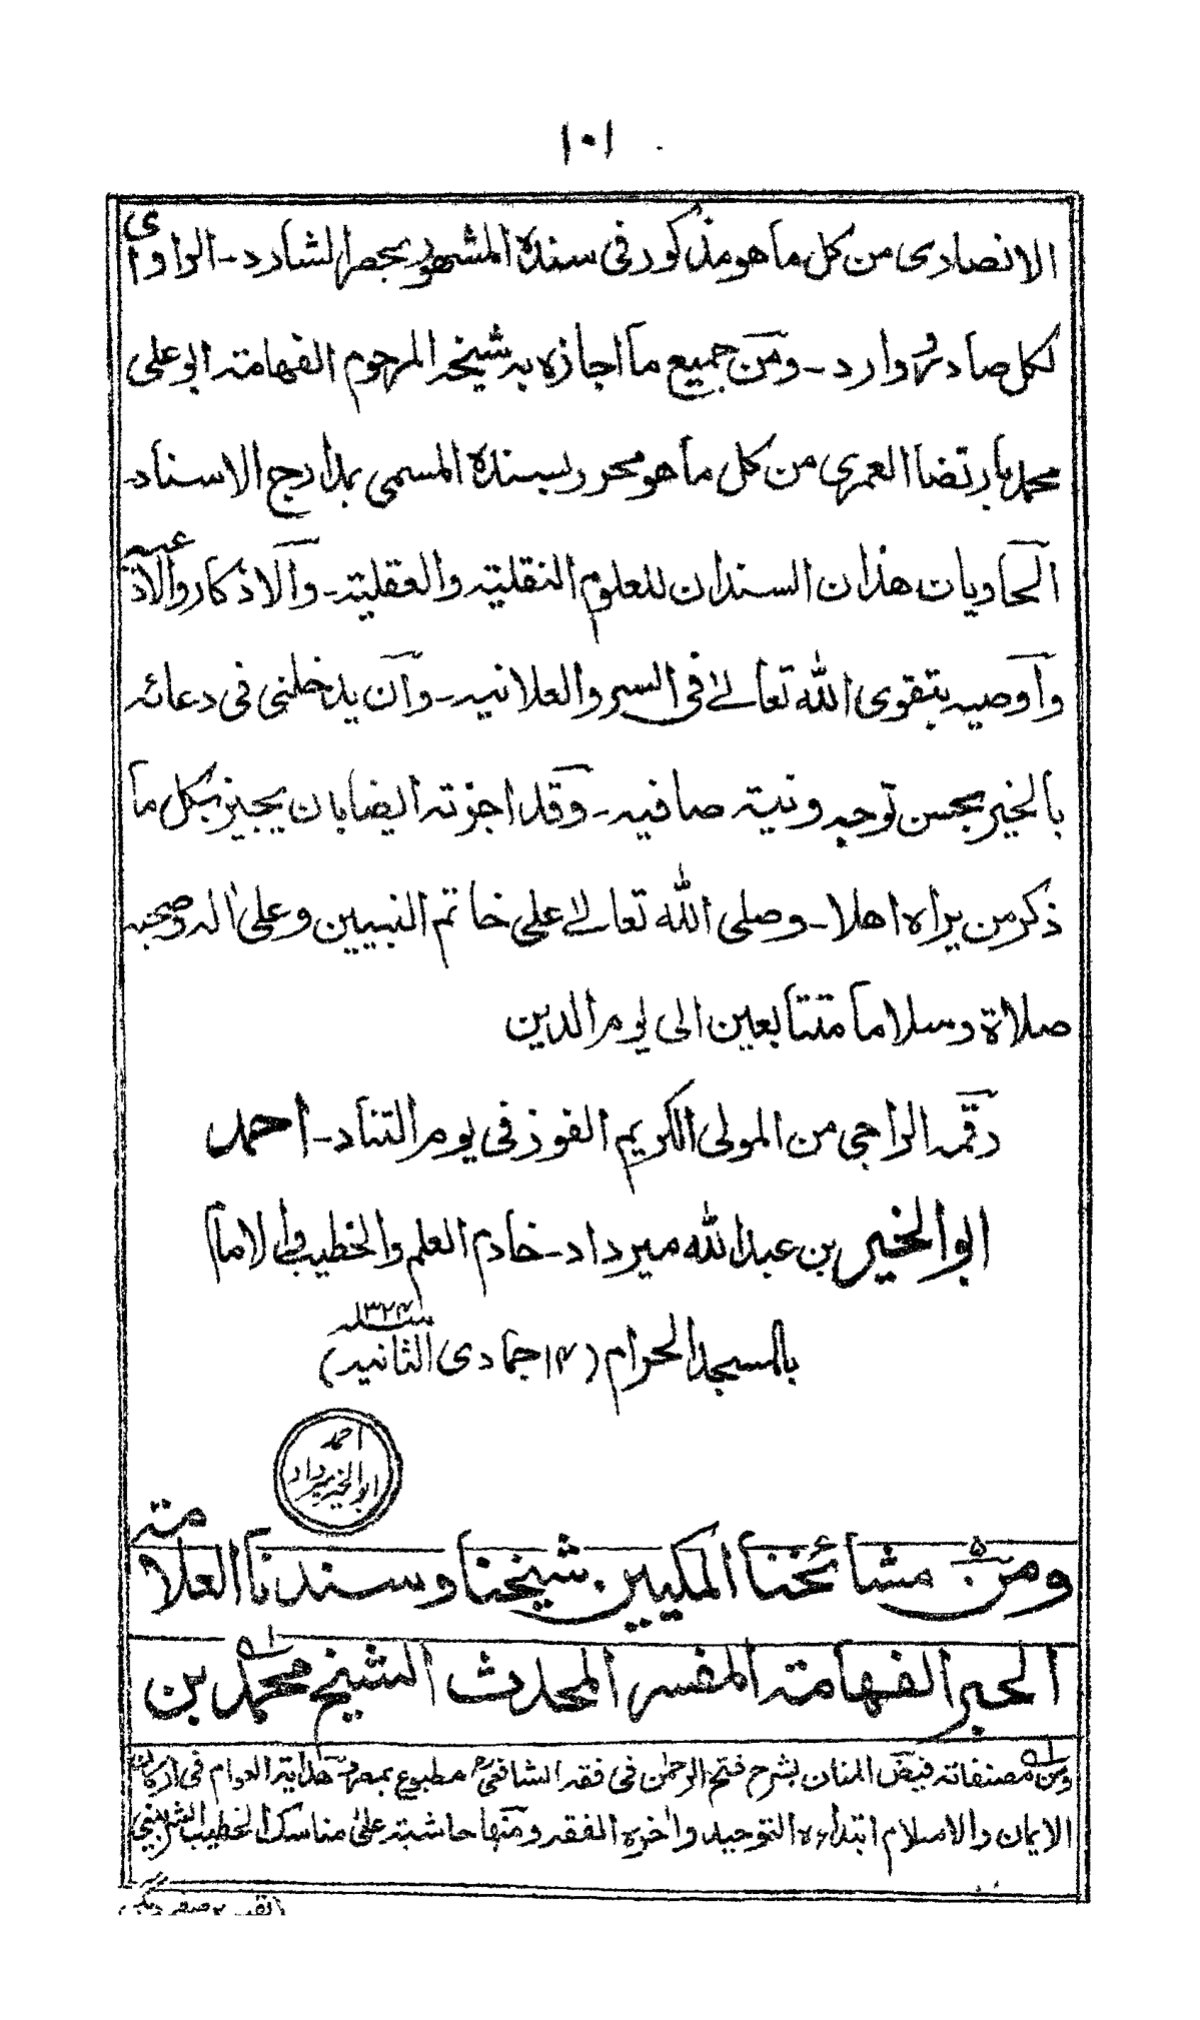 ١٠١
الانصاری من كل ما هو مذكور فی سنده المشهور بحصر الشارد۔ الراوی
لكل صادر و وارد۔ ومن جمیع ما اجازه به شیخه المرحوم الفهامة ابو علی
محمد بارتضا العمری من كل ما هو محرر بسنده المسمی بمدارج الاسناد۔
الحاویان هذان السندان للعلوم النقلیة والعقلیة۔ والاذكار والادعیة
واوصیه بتقوی الله تعالی فی السر والعلانیه۔ وان یدخلنی فی دعائه
بالخیر بحسن توجه ونیة صافیه۔ وقد اجزته ایضا بان یجیز بكل ما
ذكر من یراه اهلا۔ وصلی الله تعالی علی خاتم النبیین وعلی اله وصحبه
صلاة وسلاما متتابعین الی یوم الدین
رقمه الراجی من المولی الكریم الفوز فی یوم التناد۔ احمد
ابو الخیر بن عبد الله میرداد۔ خادم العلم والخطیب والامام
بالمسجد الحرام (١٤ جمادی الثانیه) سنه ١٣٢٤
احمد
ابو الخیر میرداد
ومن مشائخنا المكیین شیخنا وسندنا العلامة
الحبر الفهامة المفسر المحدث الشیخ محمد بن
ومن مصنفاته فیض المنان بشرح فتح الرحمن فی فقه الشافعی مطبوع بمصر هدایة العوام فی اركان
الایمان والاسلام ابتداءه التوحید واخره الفقه ومنها حاشیته علی مناسك الخطیب الشربینی